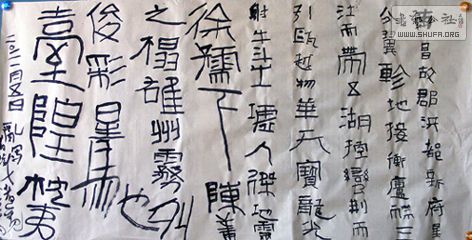 昌故郡洪都新府星
分翼軫地接衡廬襟三
江而帶五湖控蠻荊而
引甌越物華天寶龍光
射牛斗之墟人傑地靈
徐孺下陳蕃
之榻雄州霧列
俊彩星馳
臺隍枕夷
月五日
亂寫
公社
WWW.SHUFA.ORG